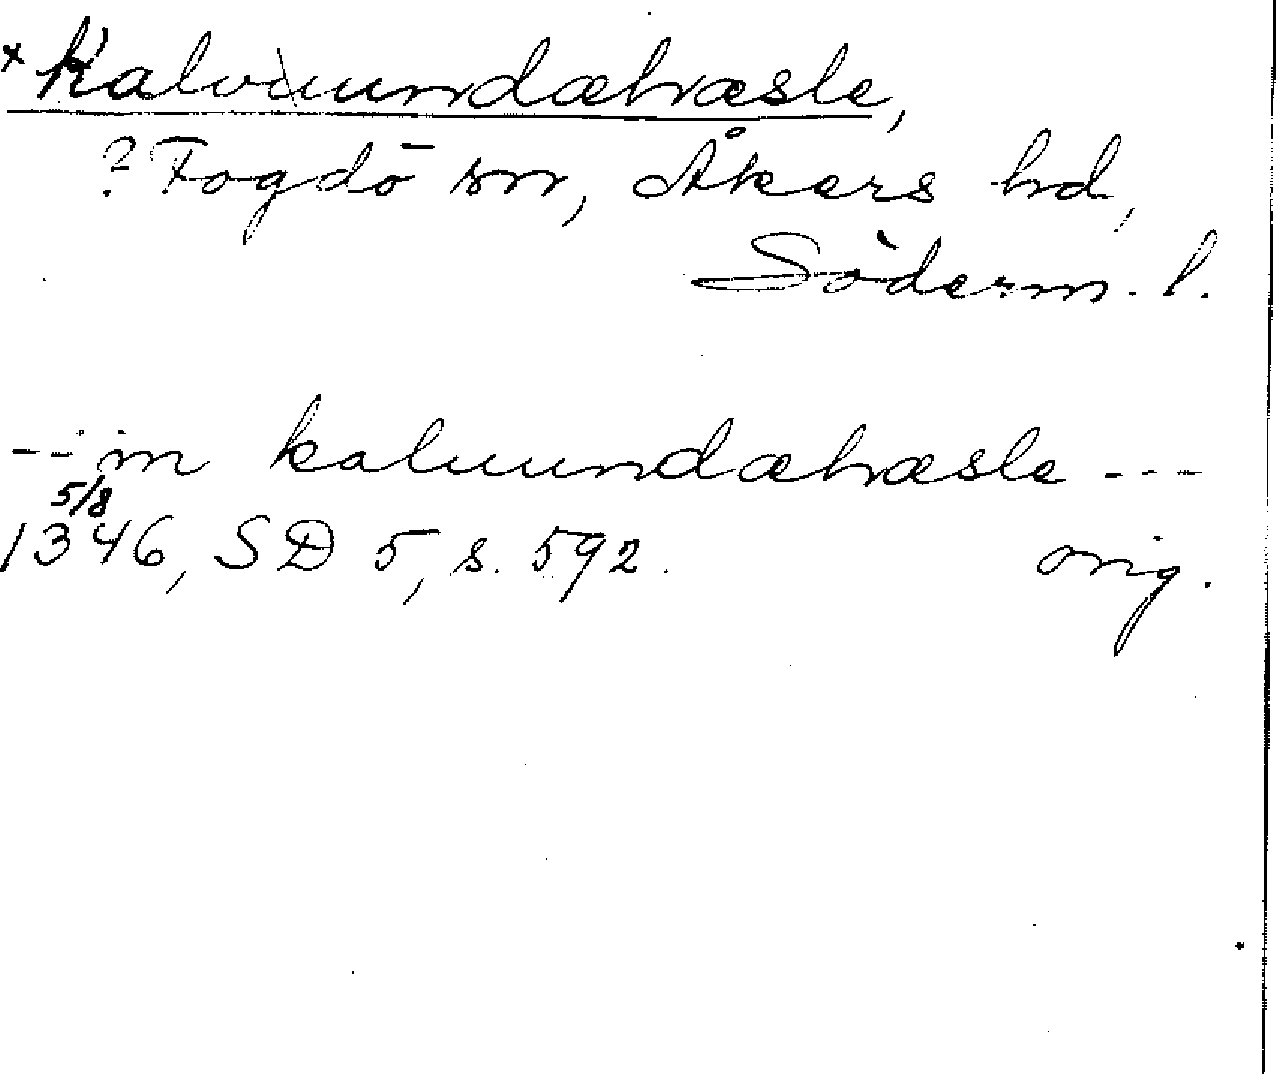 *Kalvundæhæsle,
? Fogdö sn, Åkers hd,
Söderm. l.
--- in kaluundæhæsle ---
5/8
1346, SD 5, s. 592. orig.